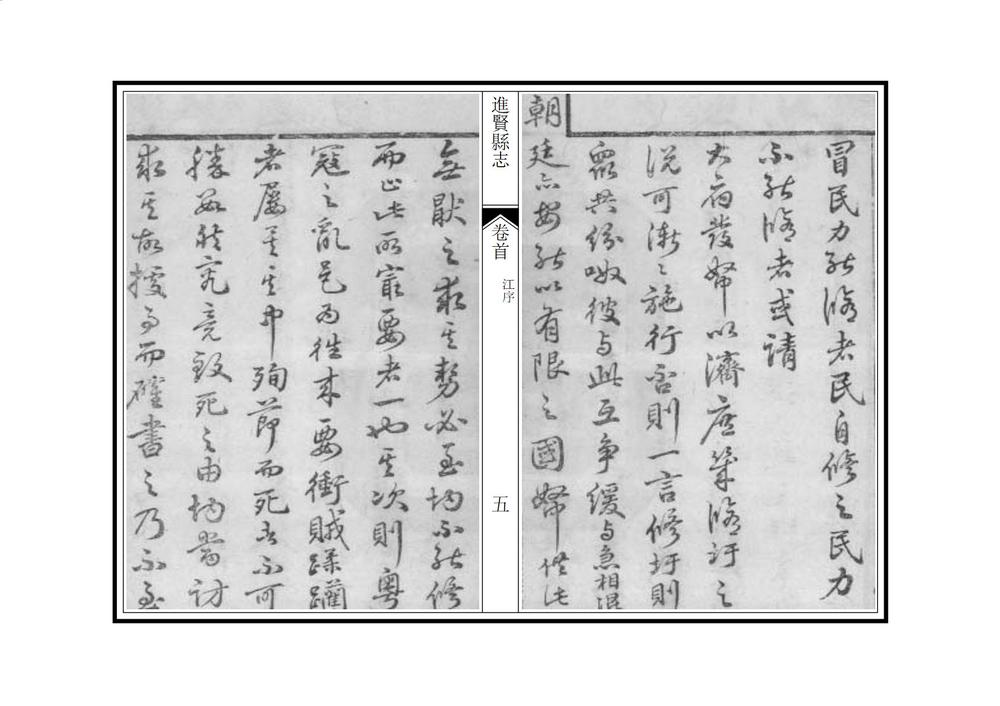 冒民力能脩者民自修之民力
不能脩者或請
大府發帑以濟庶築脩圩之
說可漸〻施行否則一言修圩則
眾共紛呶彼与此互争緩与急相混
朝
廷亦安能以有限之國帑供此
進賢縣志
卷首
江序
五
無厭之求其勢必至均不能修
而止此所最要者一也其次則粵
寇之亂邑为往来要衝賊蹂躪
者屢矣其中殉節而死者不可
勝數然究竟致死之由均當訪
求其故據事而確書之乃不至